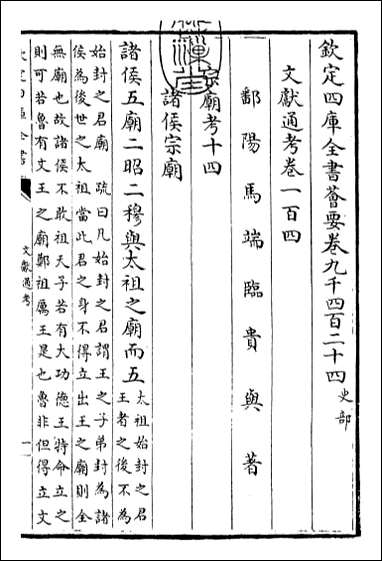 欽定四庫全書薈要卷九千四百二十四 史部
文獻通考卷一百四
鄱陽馬端臨貴與著
宗廟考十四
諸侯宗廟
諸侯五廟二昭二穆與太祖之廟而五 太祖始封之君
王者之後不為
始封之君廟 疏曰凡始封之君謂王之子弟封為諸
侯為後世之太祖當此君之身不得立出王之廟則全
無廟也故諸侯不敢祖天子若有大功德王特命立之
則可若魯有文王之廟鄭祖厲王是也魯非但得立文
欽定四庫全書
文獻通考
一